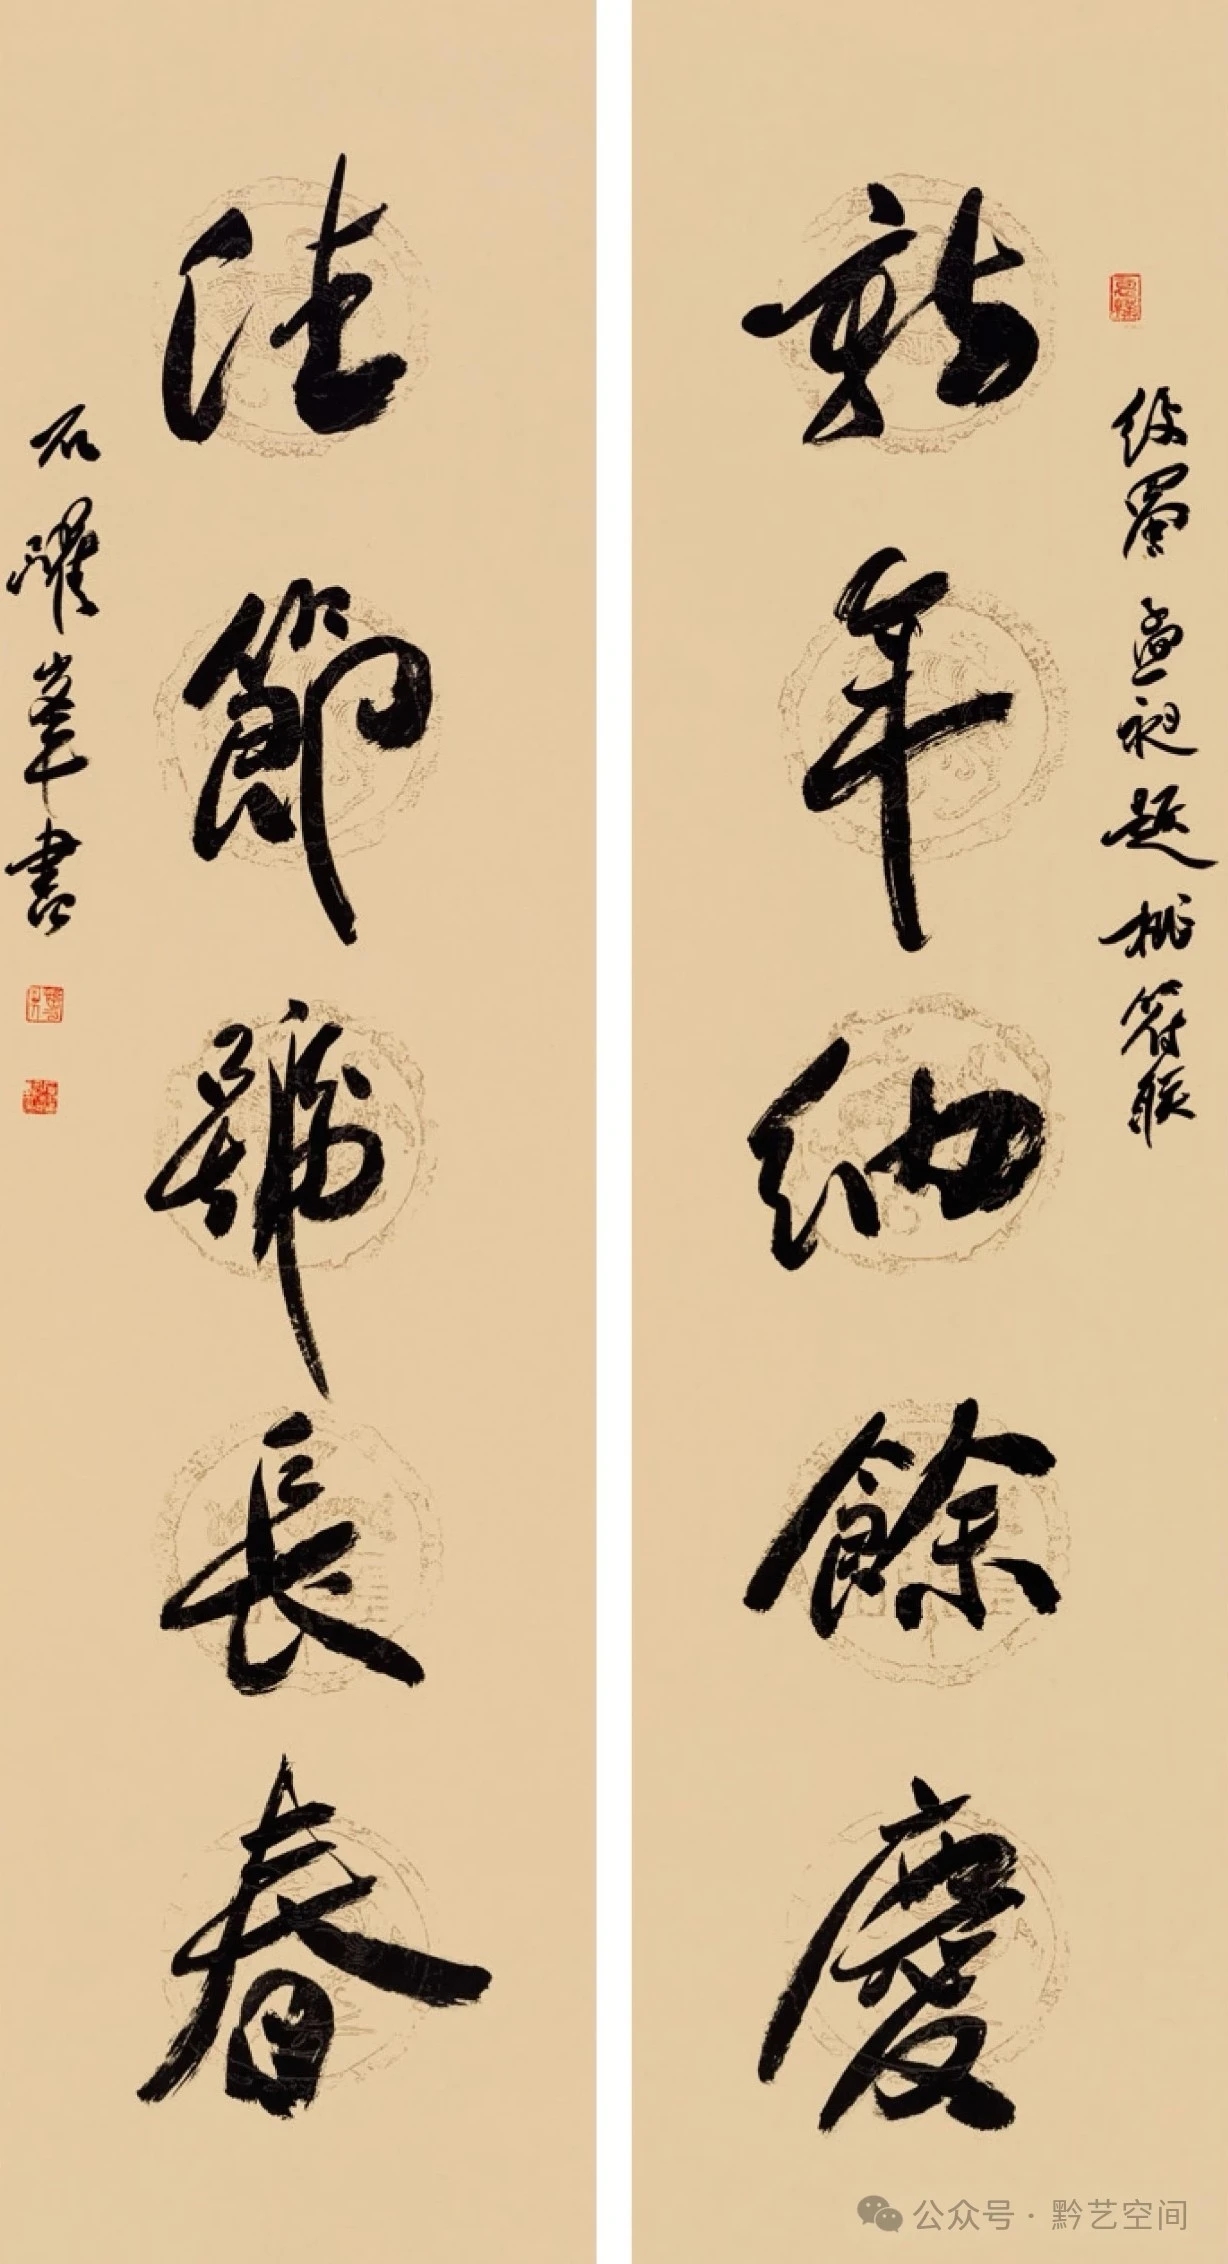 新年納餘慶
後蜀孟昶題桃符聯
佳節號長春
石躍峯書
公众号 · 黔艺空间